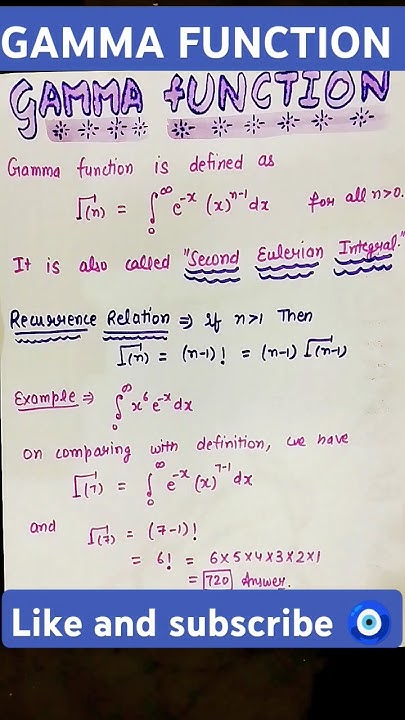 GAMMA FUNCTION
GAMMA fUNCTION
Gamma function is defined as
Γ(n) = ∫₀^∞ e^-x (x)^n-1 dx for all n>0.
It is also called "Second Eulerian Integral."
Recurrence Relation ⇒ If n>1 Then
Γ(n) = (n-1)! = (n-1) Γ(n-1)
Example ⇒ ∫₀^∞ x^6 e^-x dx
on comparing with definition, we have
Γ(7) = ∫₀^∞ e^-x (x)^7-1 dx
and Γ(7) = (7-1)!
= 6! = 6×5×4×3×2×1
= 720 Answer.
Like and subscribe 🧿